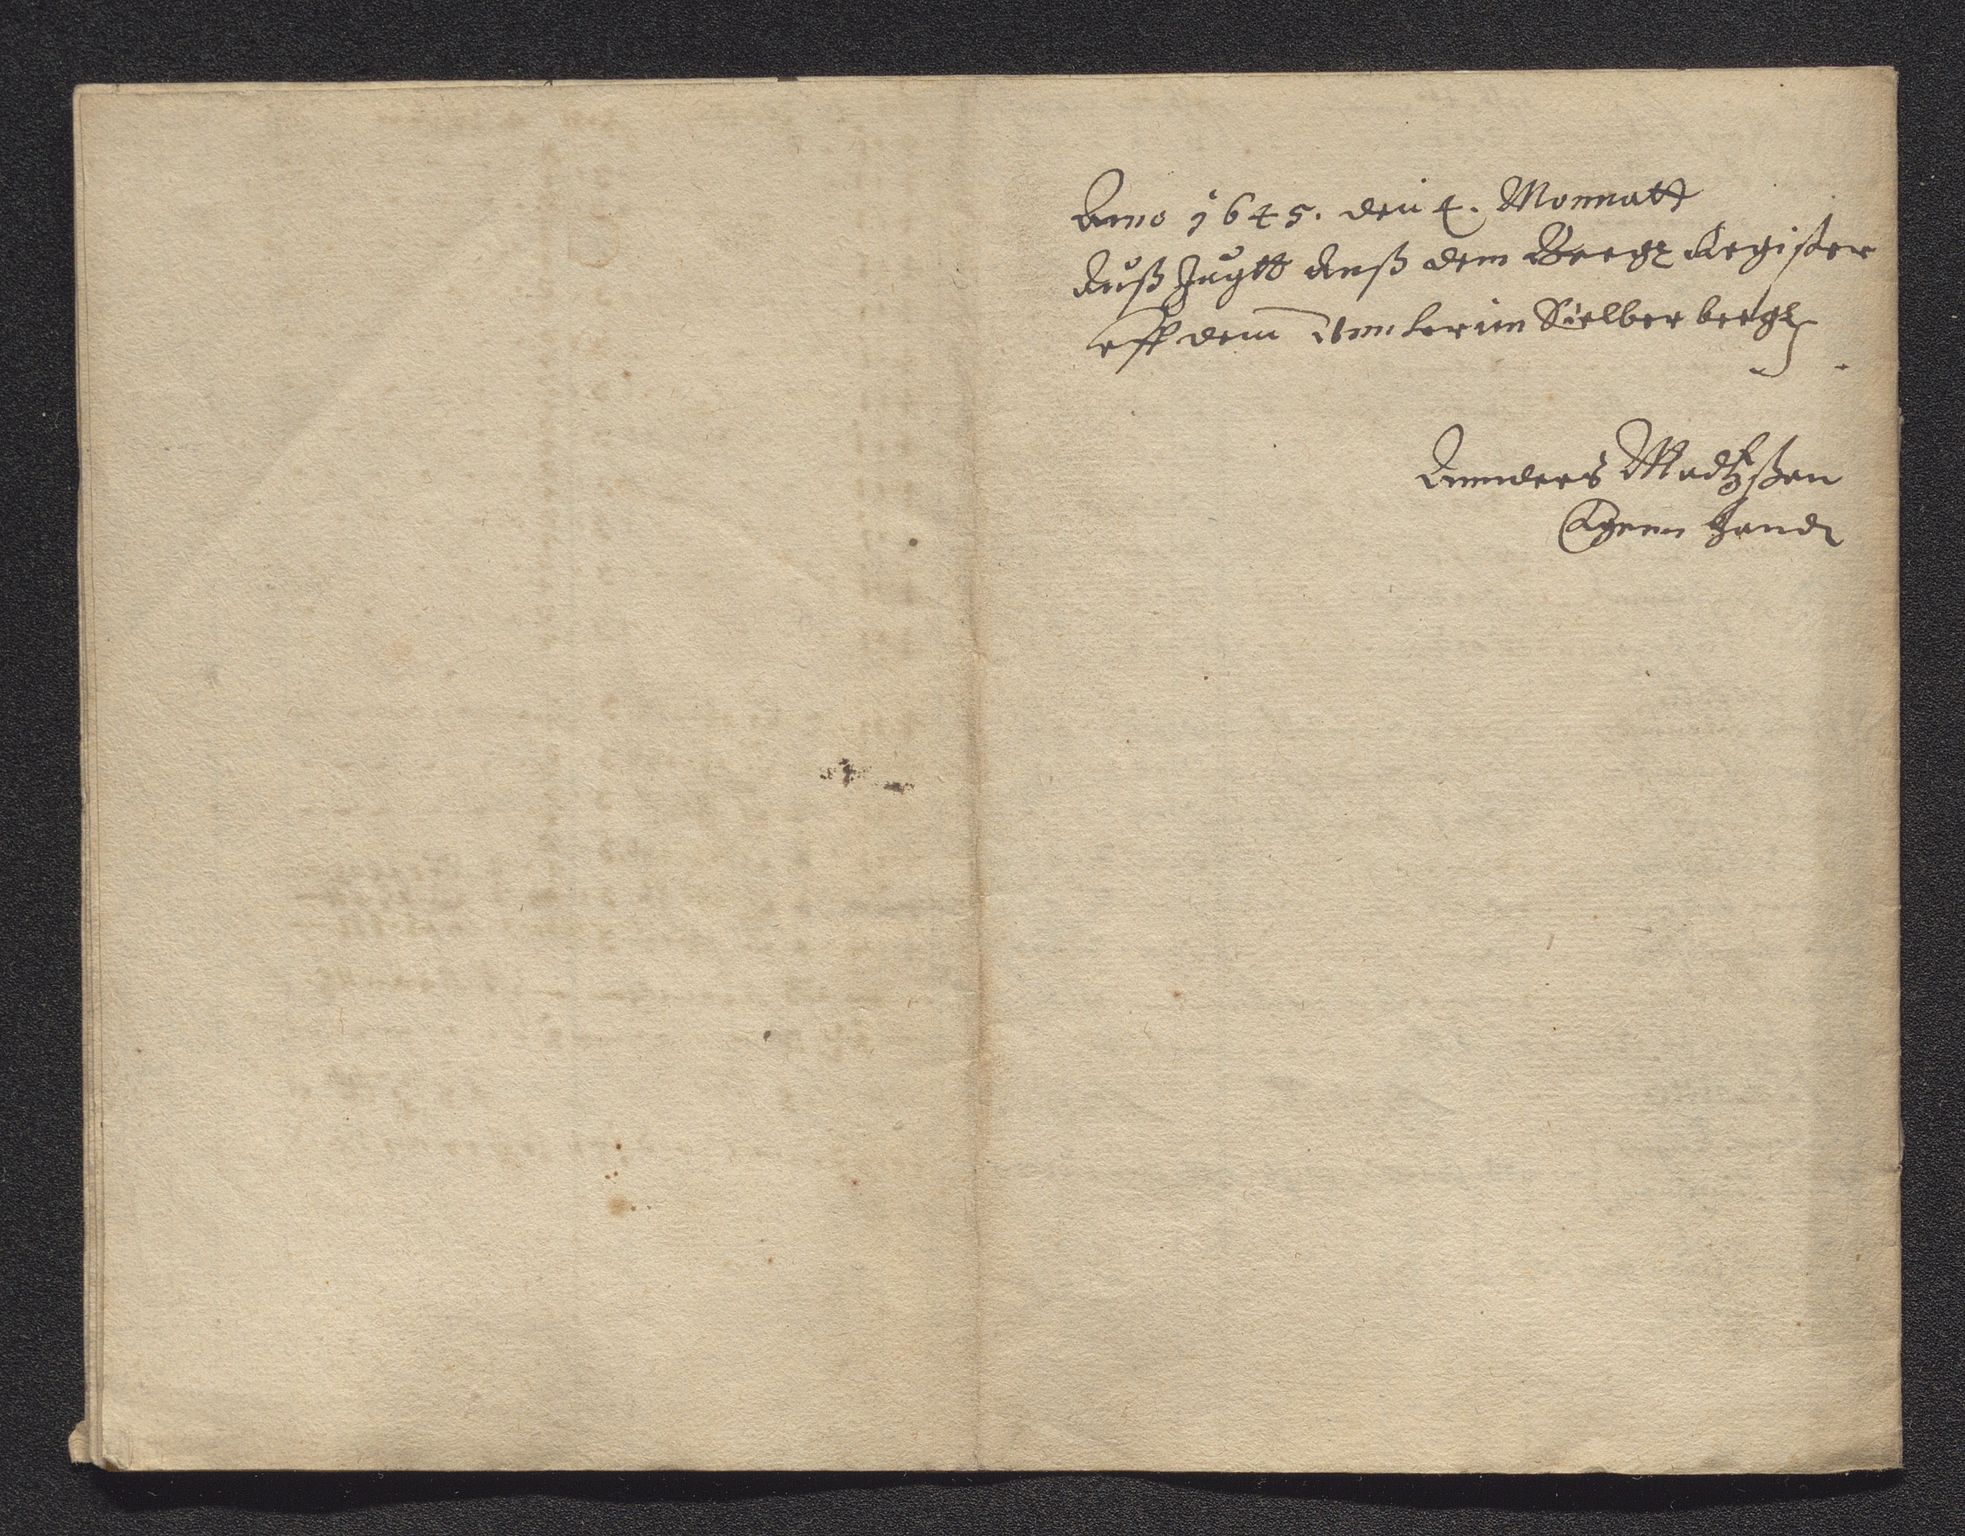 Anno 1645. den 4. Monnatt
Auß Zugtt auß dem Bergk Register
auff dem Sielber bergk
Annders Madtzßen
Egenn Handt